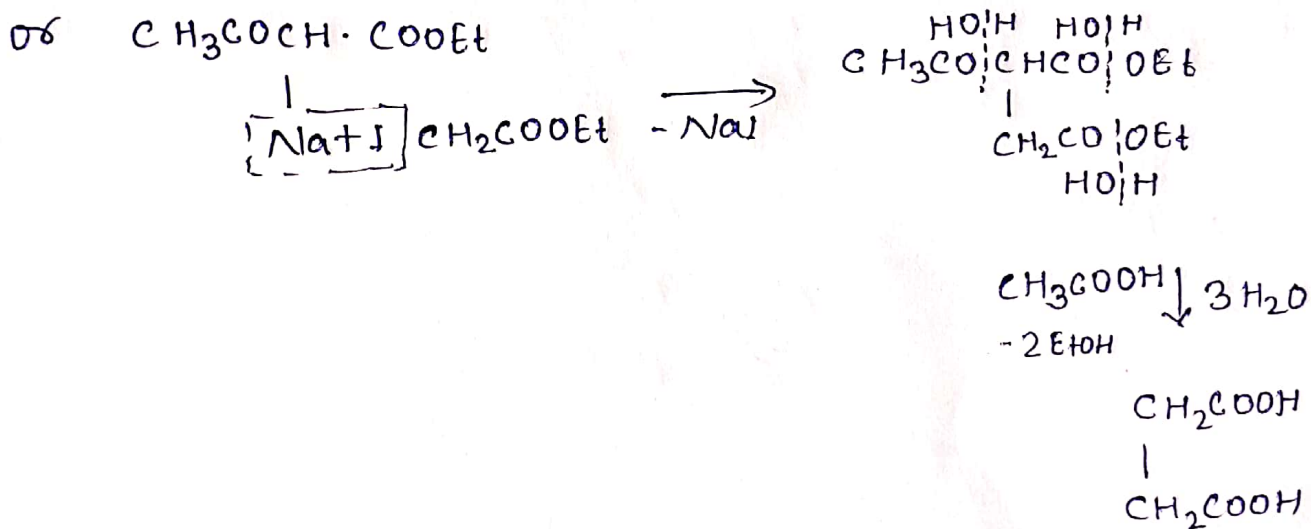 or CH3COCH· COOEt
|
Na+I CH2COOEt → - NaI
HO¦H HO¦H
CH3CO¦CHCO¦OEt
|
CH2CO¦OEt
HO¦H
CH3COOH ↓ 3H2O
- 2 EtOH
CH2COOH
|
CH2COOH